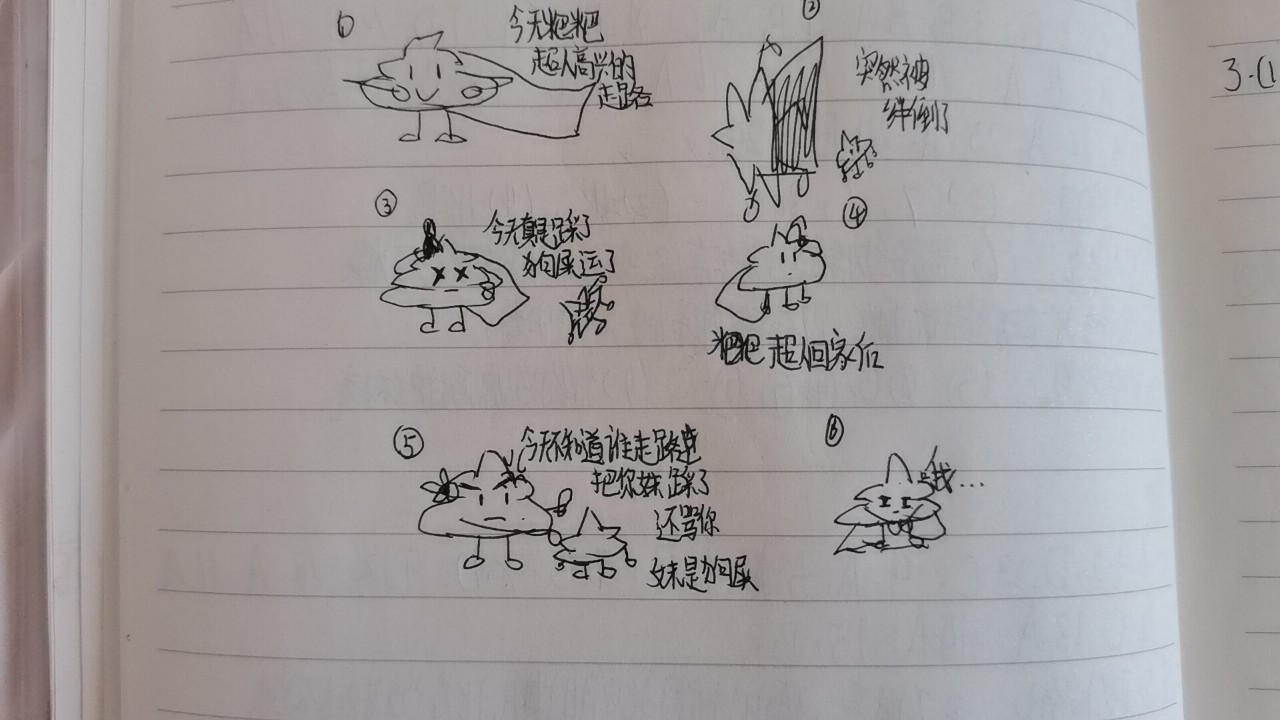 ①
今天粑粑
超人高兴的
走路
②
突然被
绊倒了
③
今天真是踩了
狗屎运了
④
粑粑超人回家后
⑤
今天不知道谁走路
把你妹踩了
还骂你
妹是狗屎
⑥
我...
3.(1